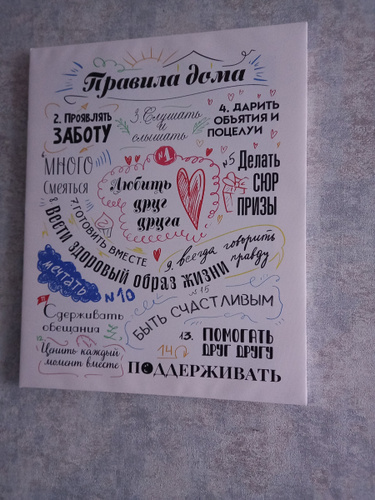 Правила дома
2. Проявлять
ЗАБОТУ
3. Слушать
и
слышать
4. ДАРИТЬ
ОБЪЯТИЯ И
ПОЦЕЛУИ
МНОГО
Смеяться
№1
Любить
друг
друга
№5 Делать
СЮР
ПРИЗЫ
7. ГОТОВИТЬ ВМЕСТЕ
8 Вести здоровый образ жизни
9. всегда говорить
правду
мечтать
№10
Сдерживать
обещания
№15
БЫТЬ СЧАСТЛИВЫМ
Ценить каждый
момент вместе
13. ПОМОГАТЬ
ДРУГ ДРУГУ
14
ПОДДЕРЖИВАТЬ